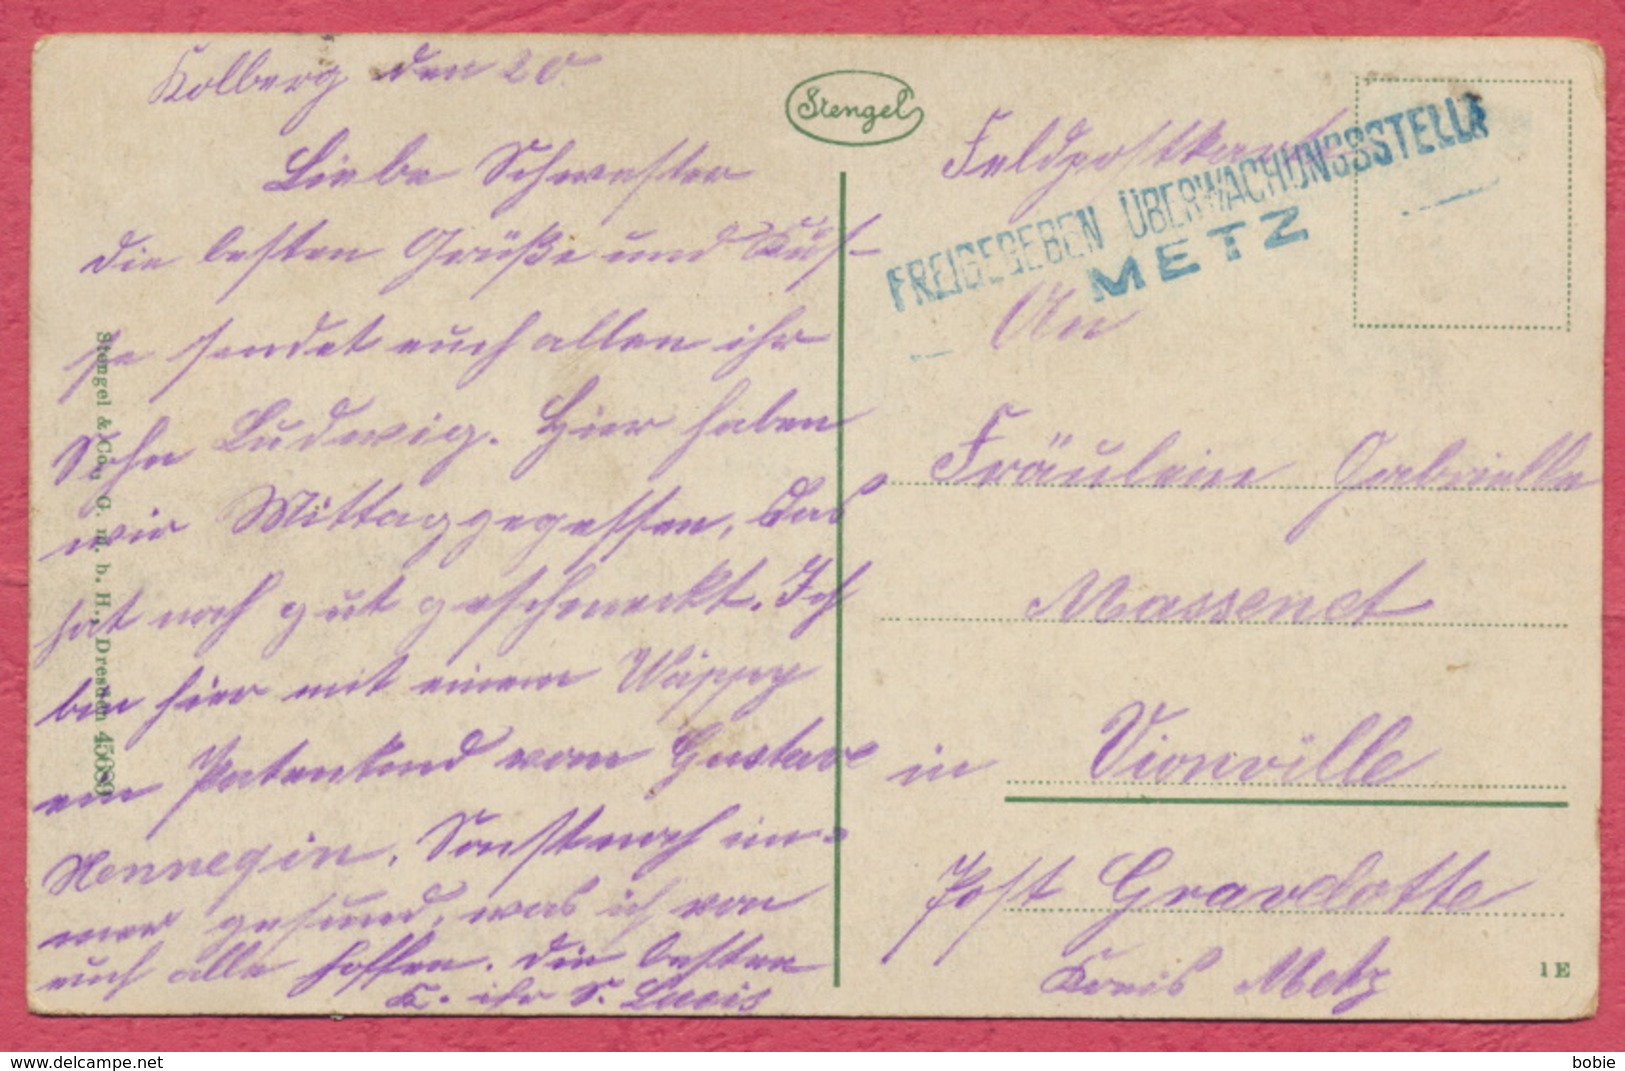 Kolberg den 20.
Liebe Schwester
die besten Grüße und Küs-
se sendet euch allen ihr
Sohn Ludwig. Hier haben
wir Mittaggegessen, das
hat noch gut geschmeckt. Ich
bin hier mit einem Wappy
ein Patenkind vom Gustave
Hennegin. Sonst noch im-
mer gesund, was ich von
euch alle hoffen. Die besten
K. ihr S. Louis
Stengel & Co., G. m. b. H., Dresden 45689
Stengel
Feldpostkarte
FREIGEGEBEN ÜBERWACHUNGSSTELLE
METZ
An
Fräulein Gabrielle
Massenet
in Vionville
Post Gravelotte
Kreis Metz
1 E
delcampe.net
bobie